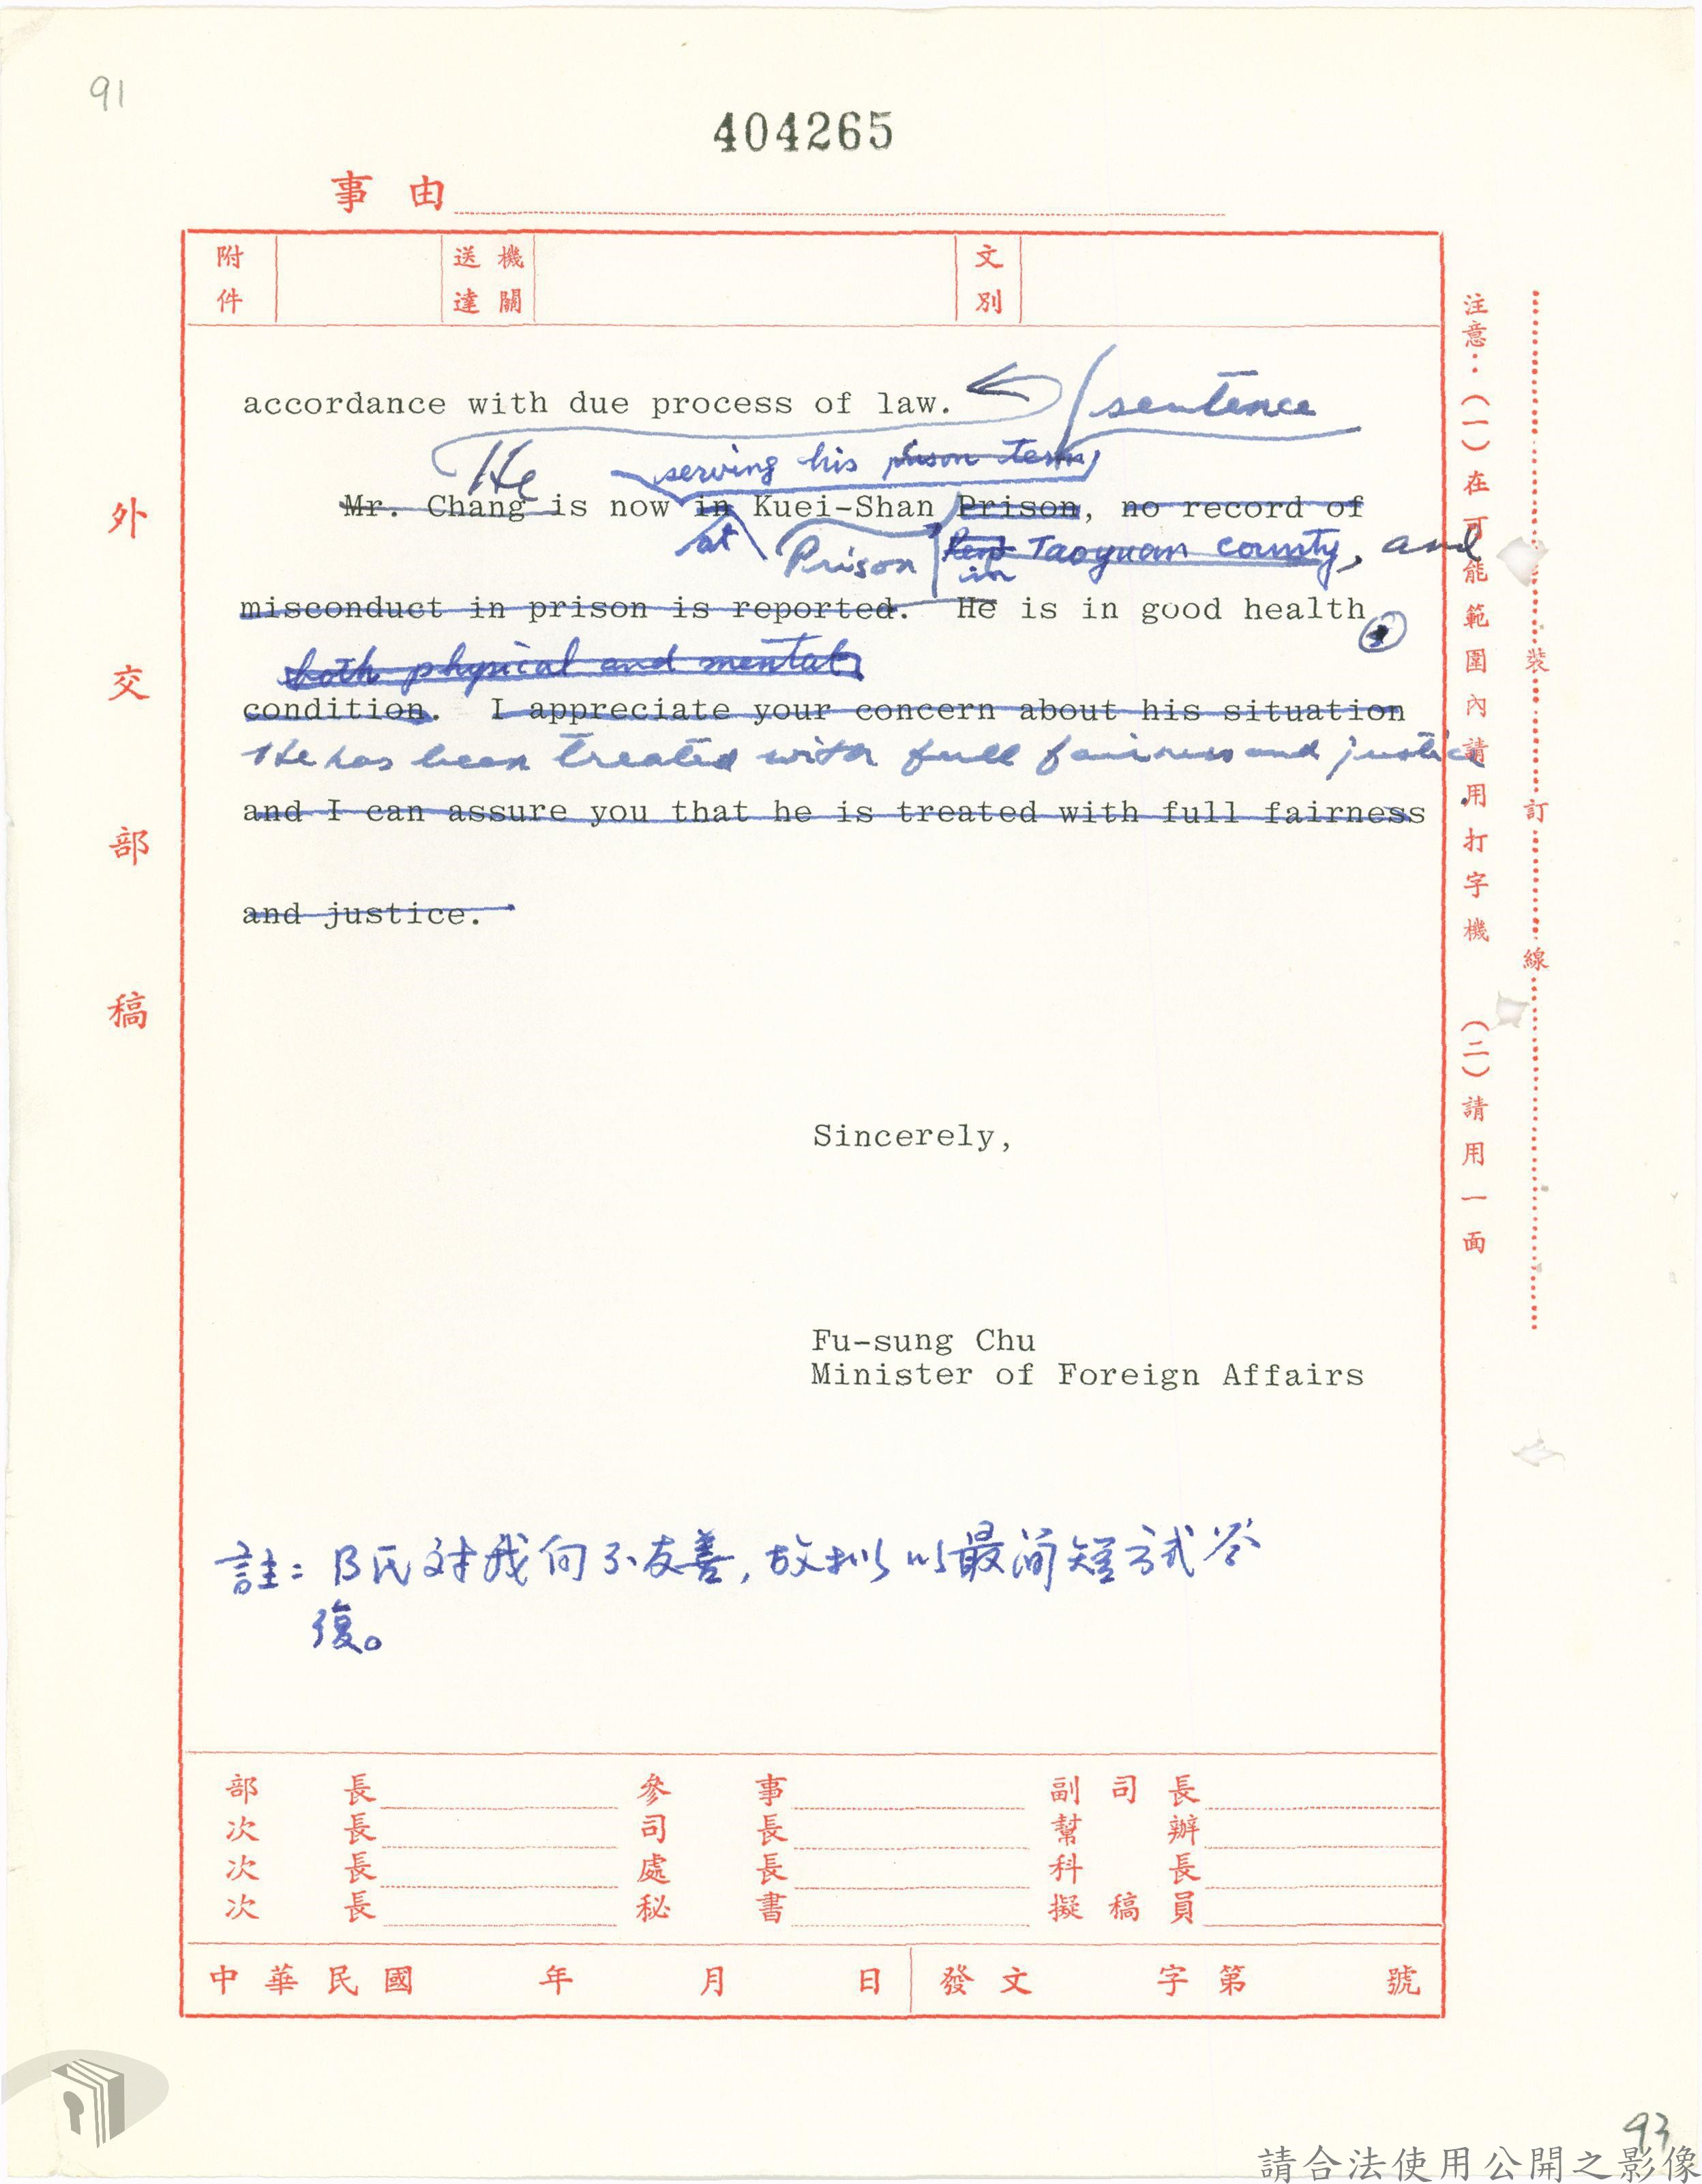 91
404265
事由
附件 送達機關 文別
accordance with due process of law. sentence
He serving his prison term,
Mr. Chang is now in Kuei-Shan Prison, no record of
at Prison in Taoyuan county, and
misconduct in prison is reported. He is in good health
both physical and mental
condition. I appreciate your concern about his situation
He has been treated with full fairness and justice
and I can assure you that he is treated with full fairness
and justice.
Sincerely,
Fu-sung Chu
Minister of Foreign Affairs
註：B氏對我向不友善，故拟以最简短方式答
復。
外交部稿
注意：（一）在可能範圍內請用打字機 （二）請用一面
裝訂線
部長 參事 副司長
次長 司長 幫辦
次長 處長 科長
次長 秘書 擬稿員
中華民國 年 月 日 發文 字第 號
93
請合法使用公開之影像